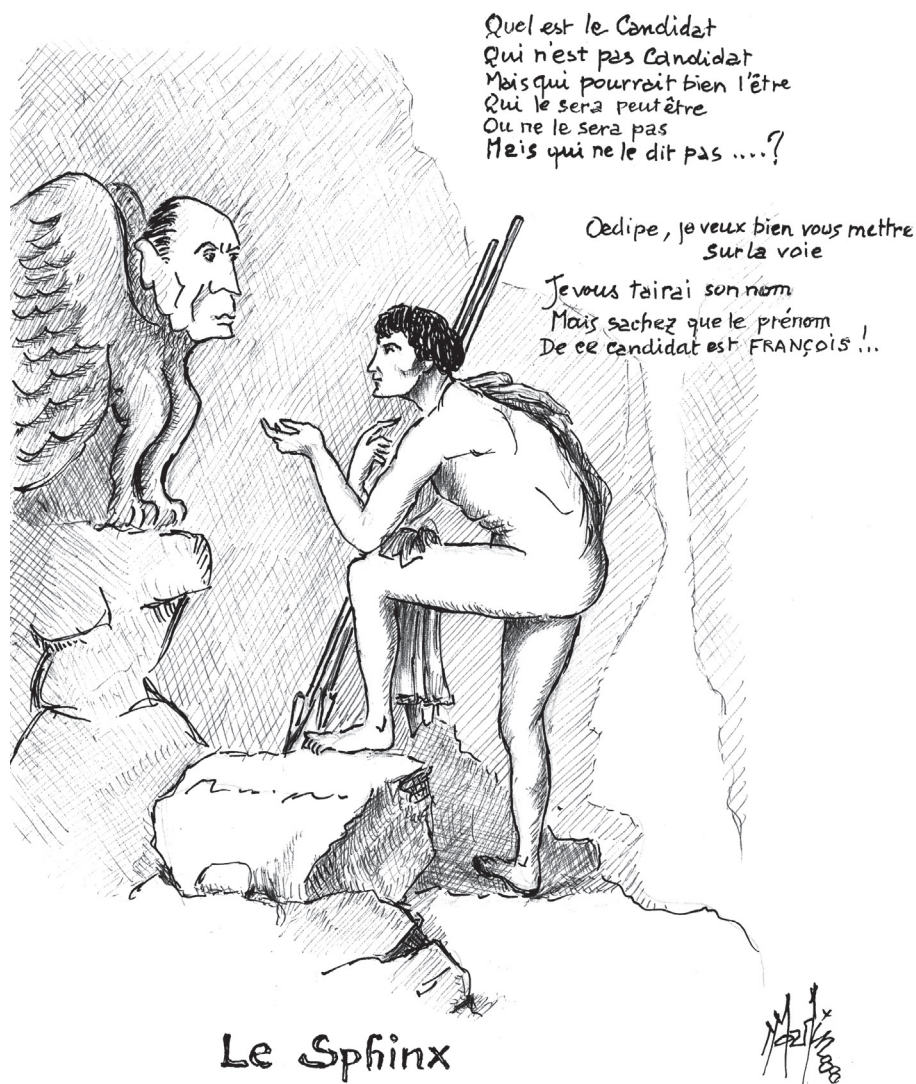 Quel est le Candidat
Qui n'est pas Candidat
Mais qui pourrait bien l'être
Qui le sera peut être
Ou ne le sera pas
Mais qui ne le dit pas ....?
Oedipe, je veux bien vous mettre
Sur la voie
Je vous tairai son nom
Mais sachez que le prénom
De ce candidat est FRANÇOIS !..
Le Sphinx